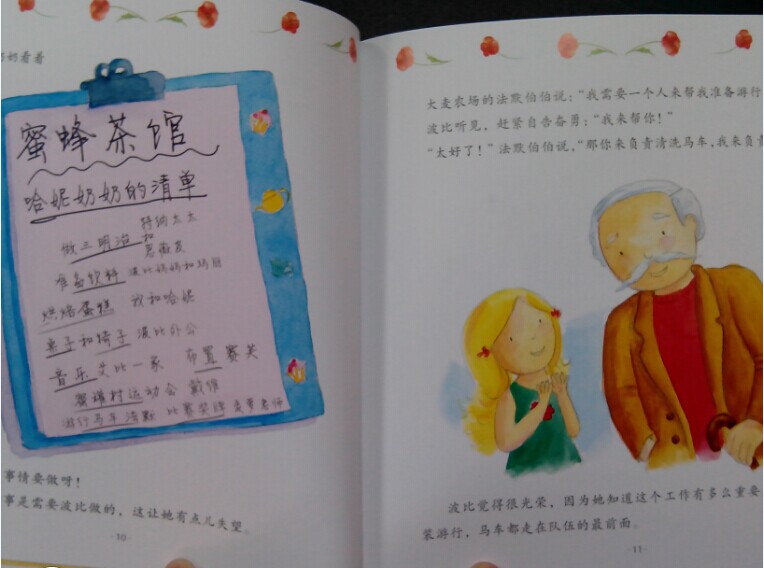 奶看着
蜜蜂茶馆
哈妮奶奶的清单
特纳太太
做三明治和
准备饮料 波比妈妈和玛丽
烘焙蛋糕 我和哈妮
桌子和椅子 波比外公
音乐 艾比一家 布置 赛芙
蜜琪村运动会 戴维
游行马车 法默 比赛奖牌 麦萝老师
事情要做呀！
事是需要波比做的，这让她有点儿失望。
·10·
大麦农场的法默伯伯说：“我需要一个人来帮我准备游行
波比听见，赶紧自告奋勇：“我来帮你！”
“太好了！”法默伯伯说，“那你来负责清洗马车，我来负责
波比觉得很光荣，因为她知道这个工作有多么重要
装游行，马车都走在队伍的最前面。
·11·